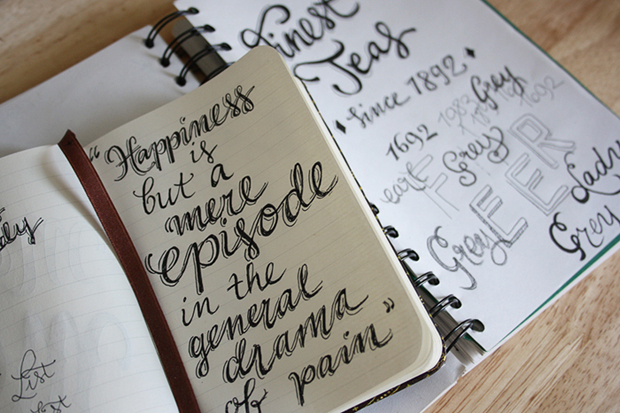 "Happiness
is
but a
mere
episode
in the
general
drama
of pain"
Finest
Teas
Since 1892
1692 1983 Grey
1692
earl Grey
FEER
Grey
Lady
Grey
List